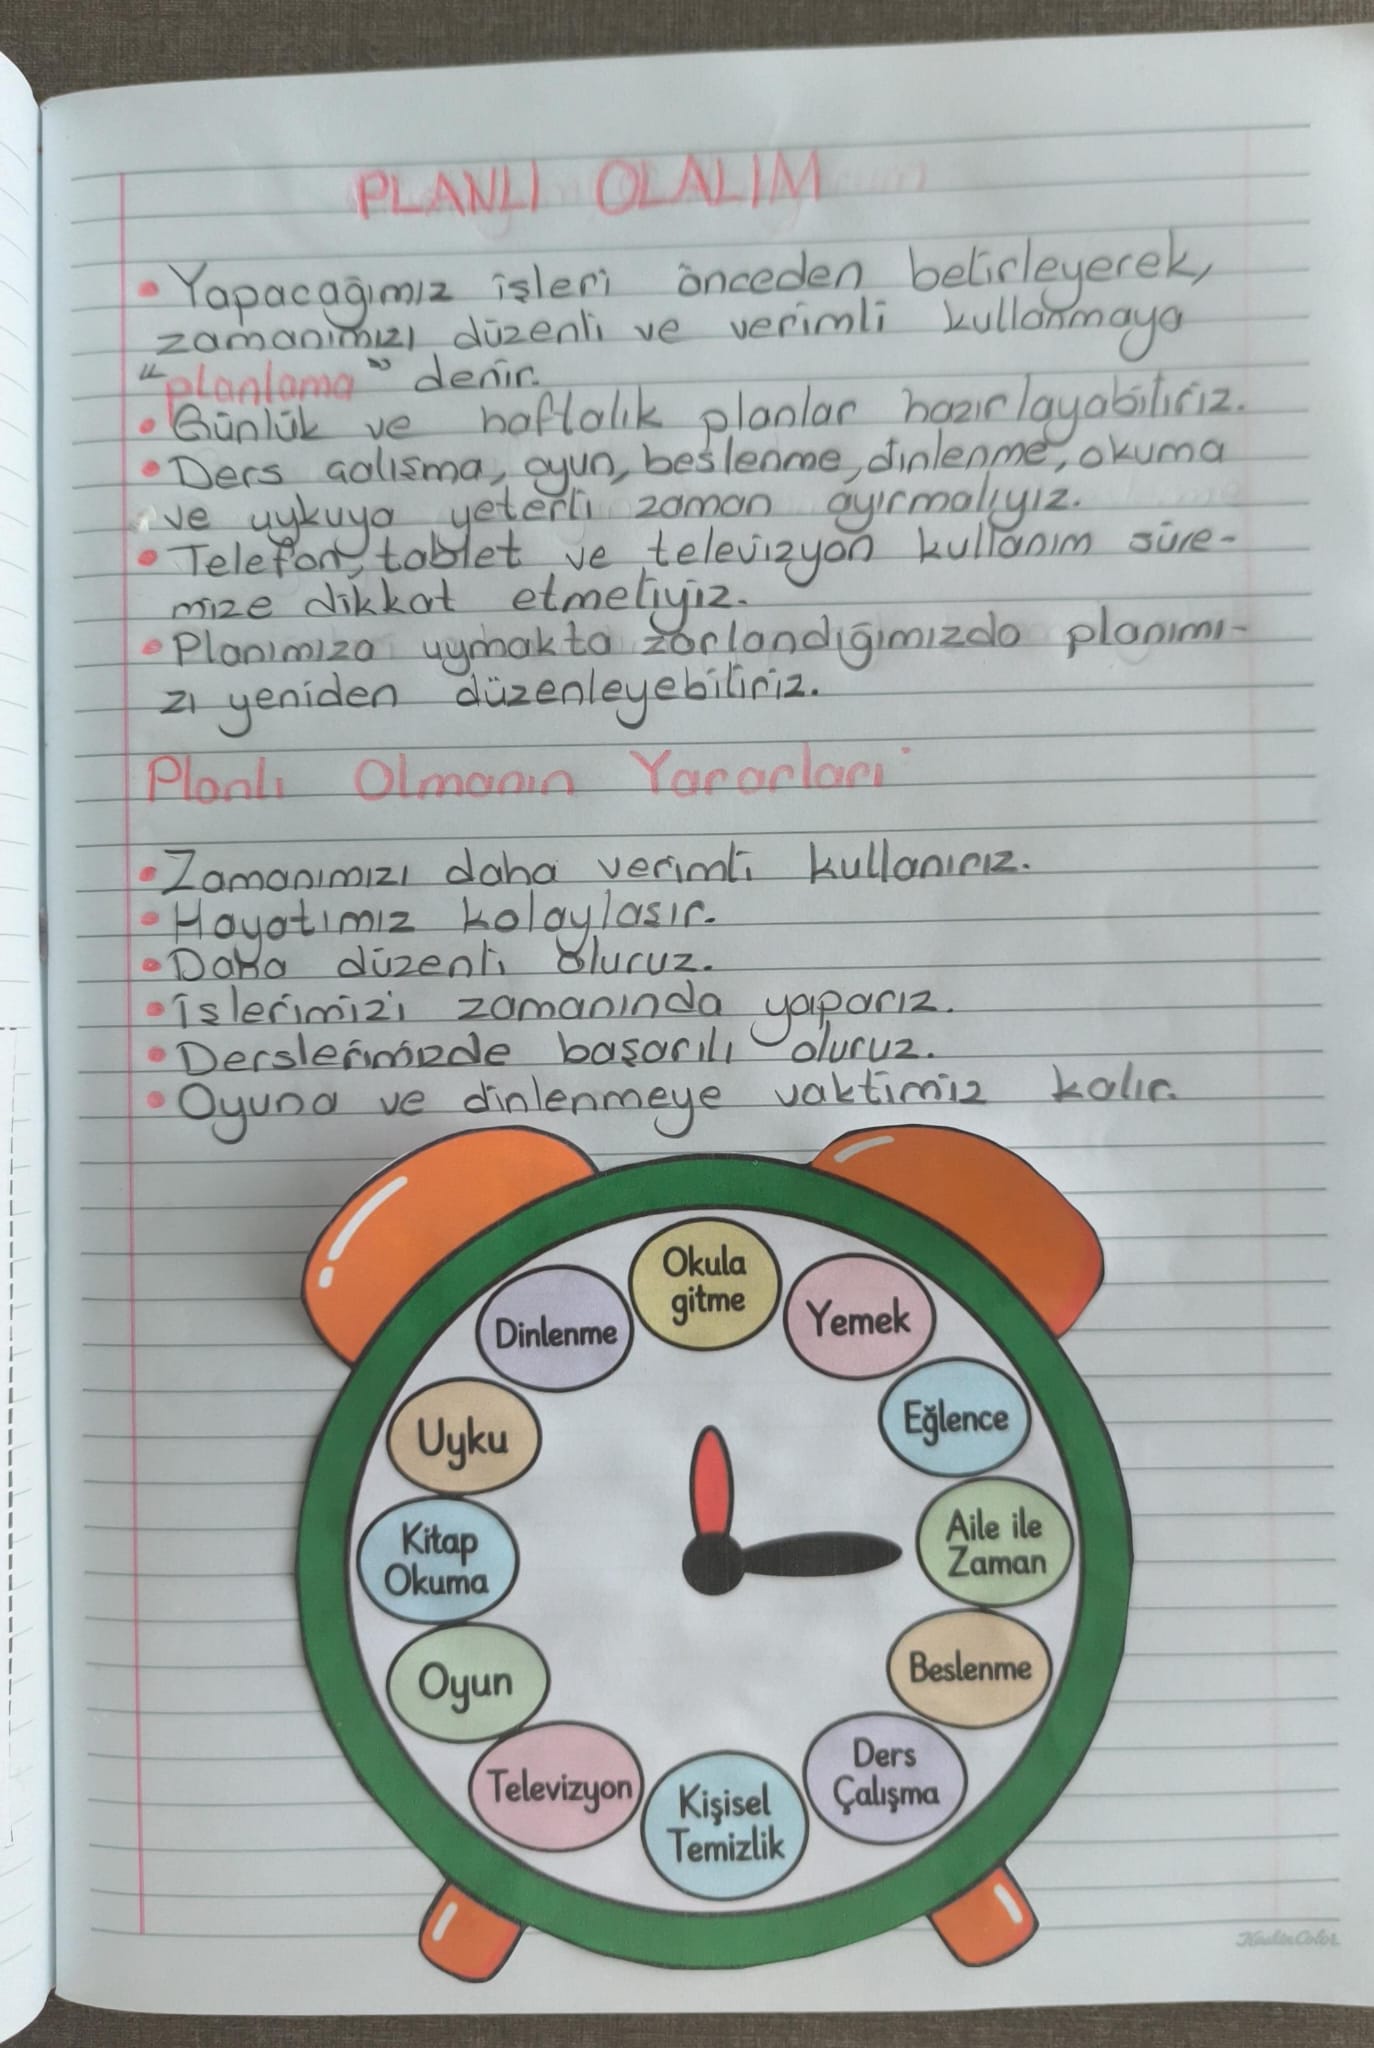 PLANLI OLALIM
• Yapacağımız işleri önceden belirleyerek,
zamanımızı düzenli ve verimli kullanmaya
"planlama" denir.
• Günlük ve haftalık planlar hazırlayabiliriz.
• Ders çalışma, oyun, beslenme, dinlenme, okuma
ve uykuya yeterli zaman ayırmalıyız.
• Telefon, tablet ve televizyon kullanım süre-
mize dikkat etmeliyiz.
• Planımıza uymakta zorlandığımızda planımı-
zı yeniden düzenleyebiliriz.
Planlı Olmanın Yararları
• Zamanımızı daha verimli kullanırız.
• Hayatımız kolaylaşır.
• Daha düzenli oluruz.
• İşlerimizi zamanında yaparız.
• Derslerimizde başarılı oluruz.
• Oyuna ve dinlenmeye vaktimiz kalır.
Okula
gitme
Yemek
Eğlence
Aile ile
Zaman
Beslenme
Ders
Çalışma
Kişisel
Temizlik
Televizyon
Oyun
Kitap
Okuma
Uyku
Dinlenme